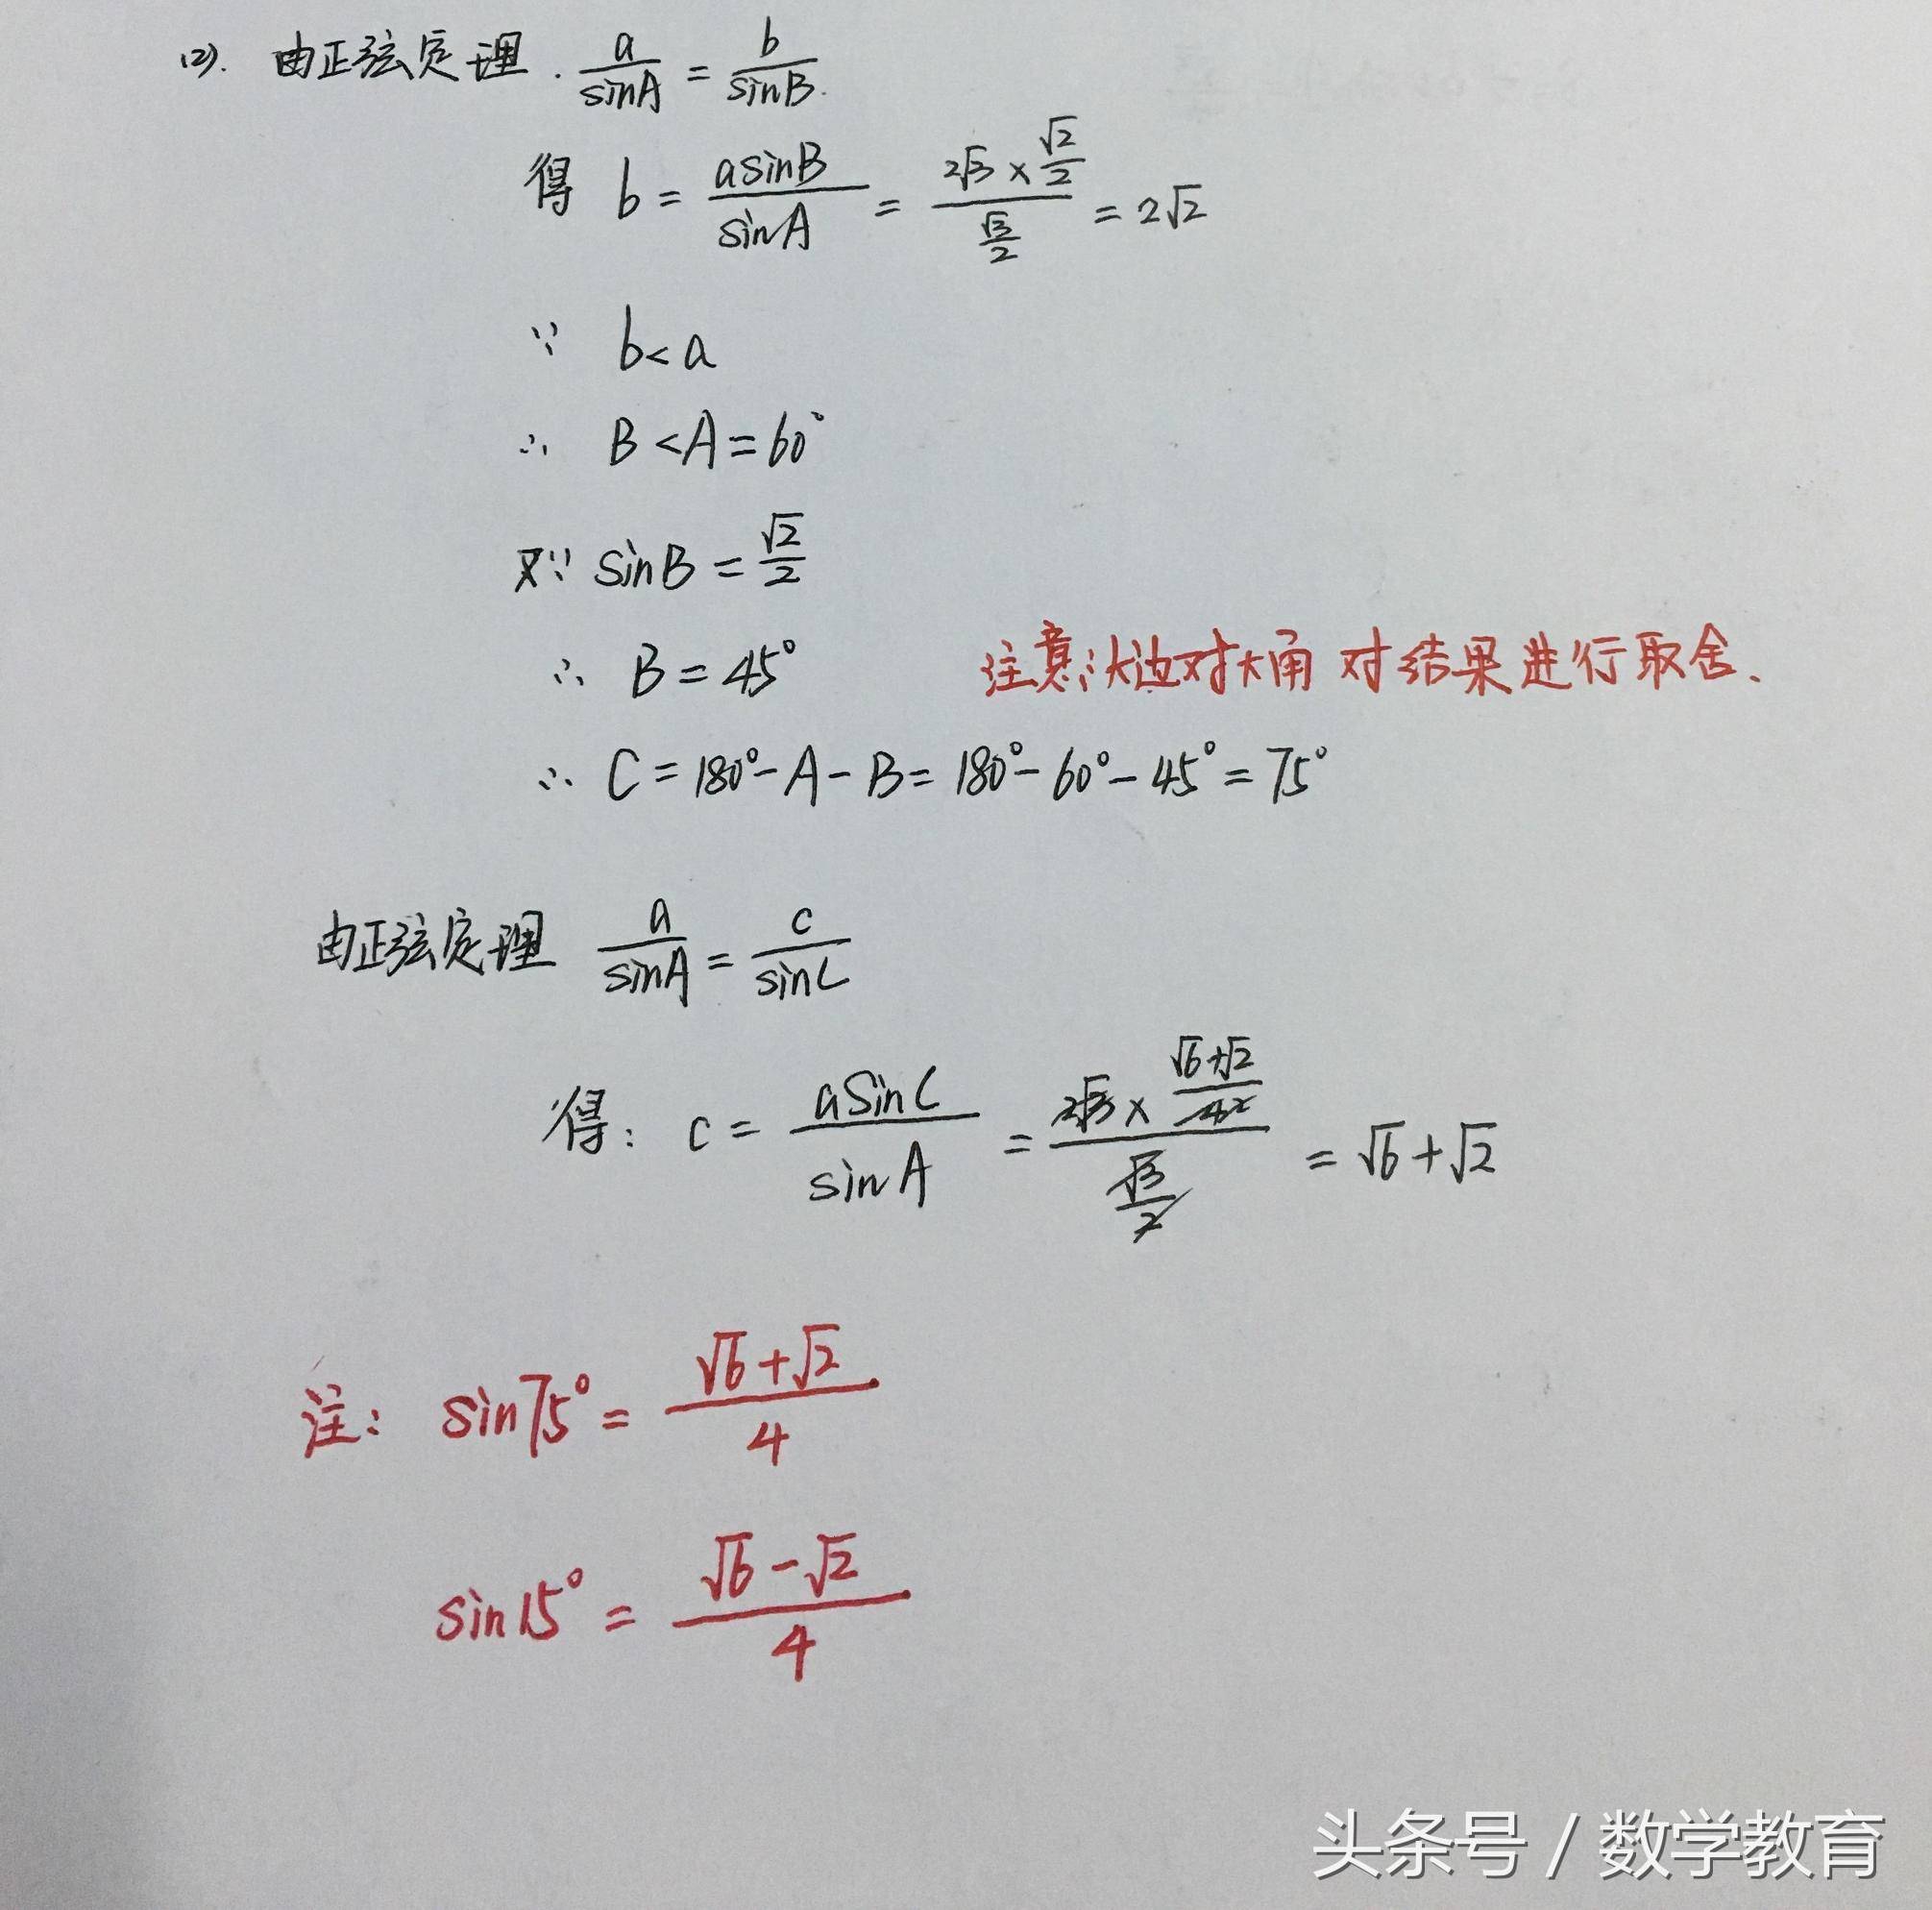 (2). 由正弦定理. a/sinA = b/sinB.
得 b = asinB/sinA = (2√3 × √2/2)/(√3/2) = 2√2
∵ b<a
∴ B<A=60°
又∵ sinB = √2/2
∴ B = 45° 注意:大边对大角 对结果进行取舍.
∴ C = 180° - A - B = 180° - 60° - 45° = 75°
由正弦定理 a/sinA = c/sinC
得: c = asinC/sinA = (2√3 × (√6+√2)/4)/(√3/2) = √6+√2
注: sin75° = (√6+√2)/4
sin15° = (√6-√2)/4
头条号 / 数学教育